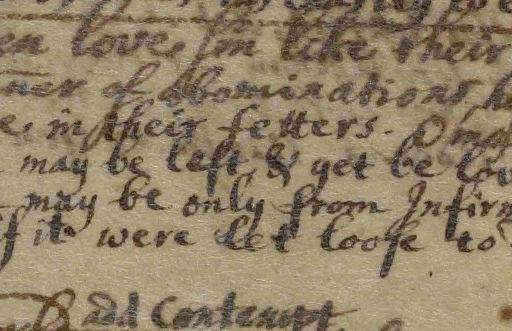 en love sin like their
ner of Abominations, h
e, in their fetters. O may
may be left & yet be lov
may be only from Infirm
f it were let loose to
add Contempt